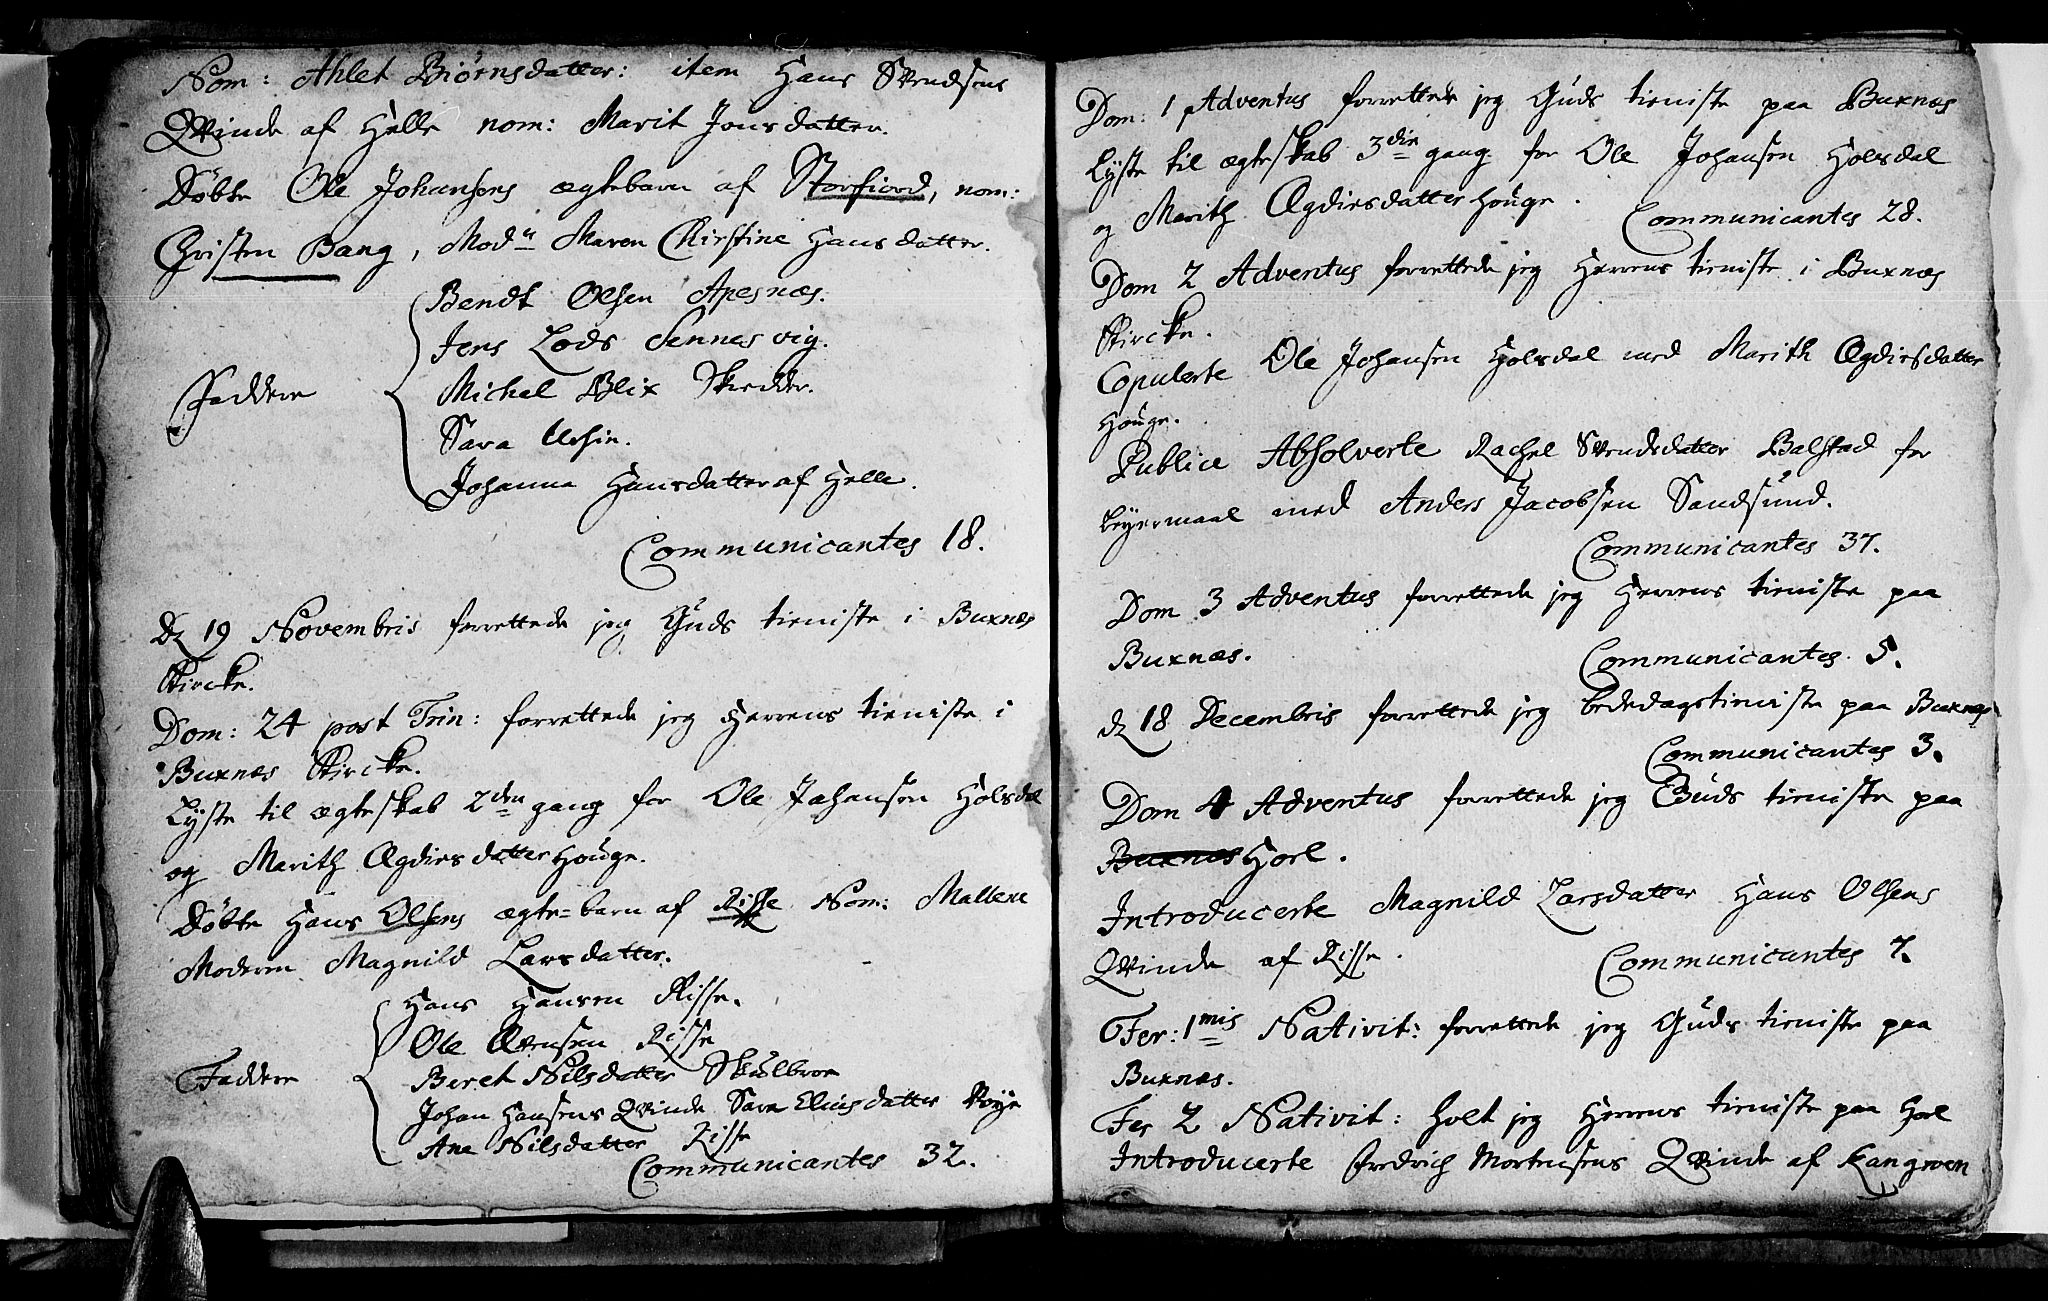 Nom: Ahlet Biörnsdatter: item Hans Svendsens
Qvinde af Helle nom: Marit Jonsdatter.
Döbte Ole Johansens ægtebarn af Storfiord, nom:
Christen Bang, Mod: Maren Chirstine Hansdatter.
Bendt Olsen Apesnæs.
Jens Lods Sennesvig.
Faddere
Michel Blix Skredder.
Sara Ursin.
Johanna Hansdatter af Helle.
Communicantes 18.
D 19 Novembris forrettede jeg Guds tieniste i Buxnæs
Kircke.
Dom: 24 post Trin: forrettede jeg Herrens tieniste i
Buxnæs Kircke.
Lyste til ægteskab 2den gang for Ole Johansen Holsdal
og Marith Ægdiesdatter Houge.
Döbte Hans Olsens ægte=barn af Risse Nom: Mallene
Moderen Magnild Larsdatter.
Hans Hansen Risse.
Ole Evensen Risse
Faddere
Beret Nilsdatter Skulbroe
Johan Hansens Qvinde Sara Eliasdatter
Ane Nilsdatter Risse
Communicantes 32.
Dom: 1 Adventus forrettede jeg Guds tieniste paa Buxnæs
Lyste til ægteskab 3die gang for Ole Johansen Holsdal
og Marith Ægdiesdatter Houge.
Communicantes 28.
Dom 2 Adventus forrettede jeg Herrens tieniste i Buxnæs
Kircke.
Copulerte Ole Johansen Holsdal med Marith Ægdiesdatter
Houge.
Publice Absolverte Rachel Svendsdatter Balstad for
Leyermaal med Anders Jacobsen Sandsund.
Communicantes 37.
Dom 3 Adventus forrettede jeg Herrens tieniste paa
Buxnæs.
Communicantes 5.
d 18 Decembris forrettede jeg bededagstieniste paa Buxnæs
Communicantes 3.
Dom 4 Adventus forrettede jeg Guds tieniste paa
Buxnæs Horl.
Introducerte Magnild Larsdatter Hans Olsens
Qvinde af Risse.
Communicantes 7.
Fer: 1mis Nativit: forrettede jeg Guds tieniste paa
Buxnæs.
Fer 2 Nativit: holt jeg Herrens tieniste paa Horl
Introducerte Fredrich Mortensens Qvinde af Kangroen